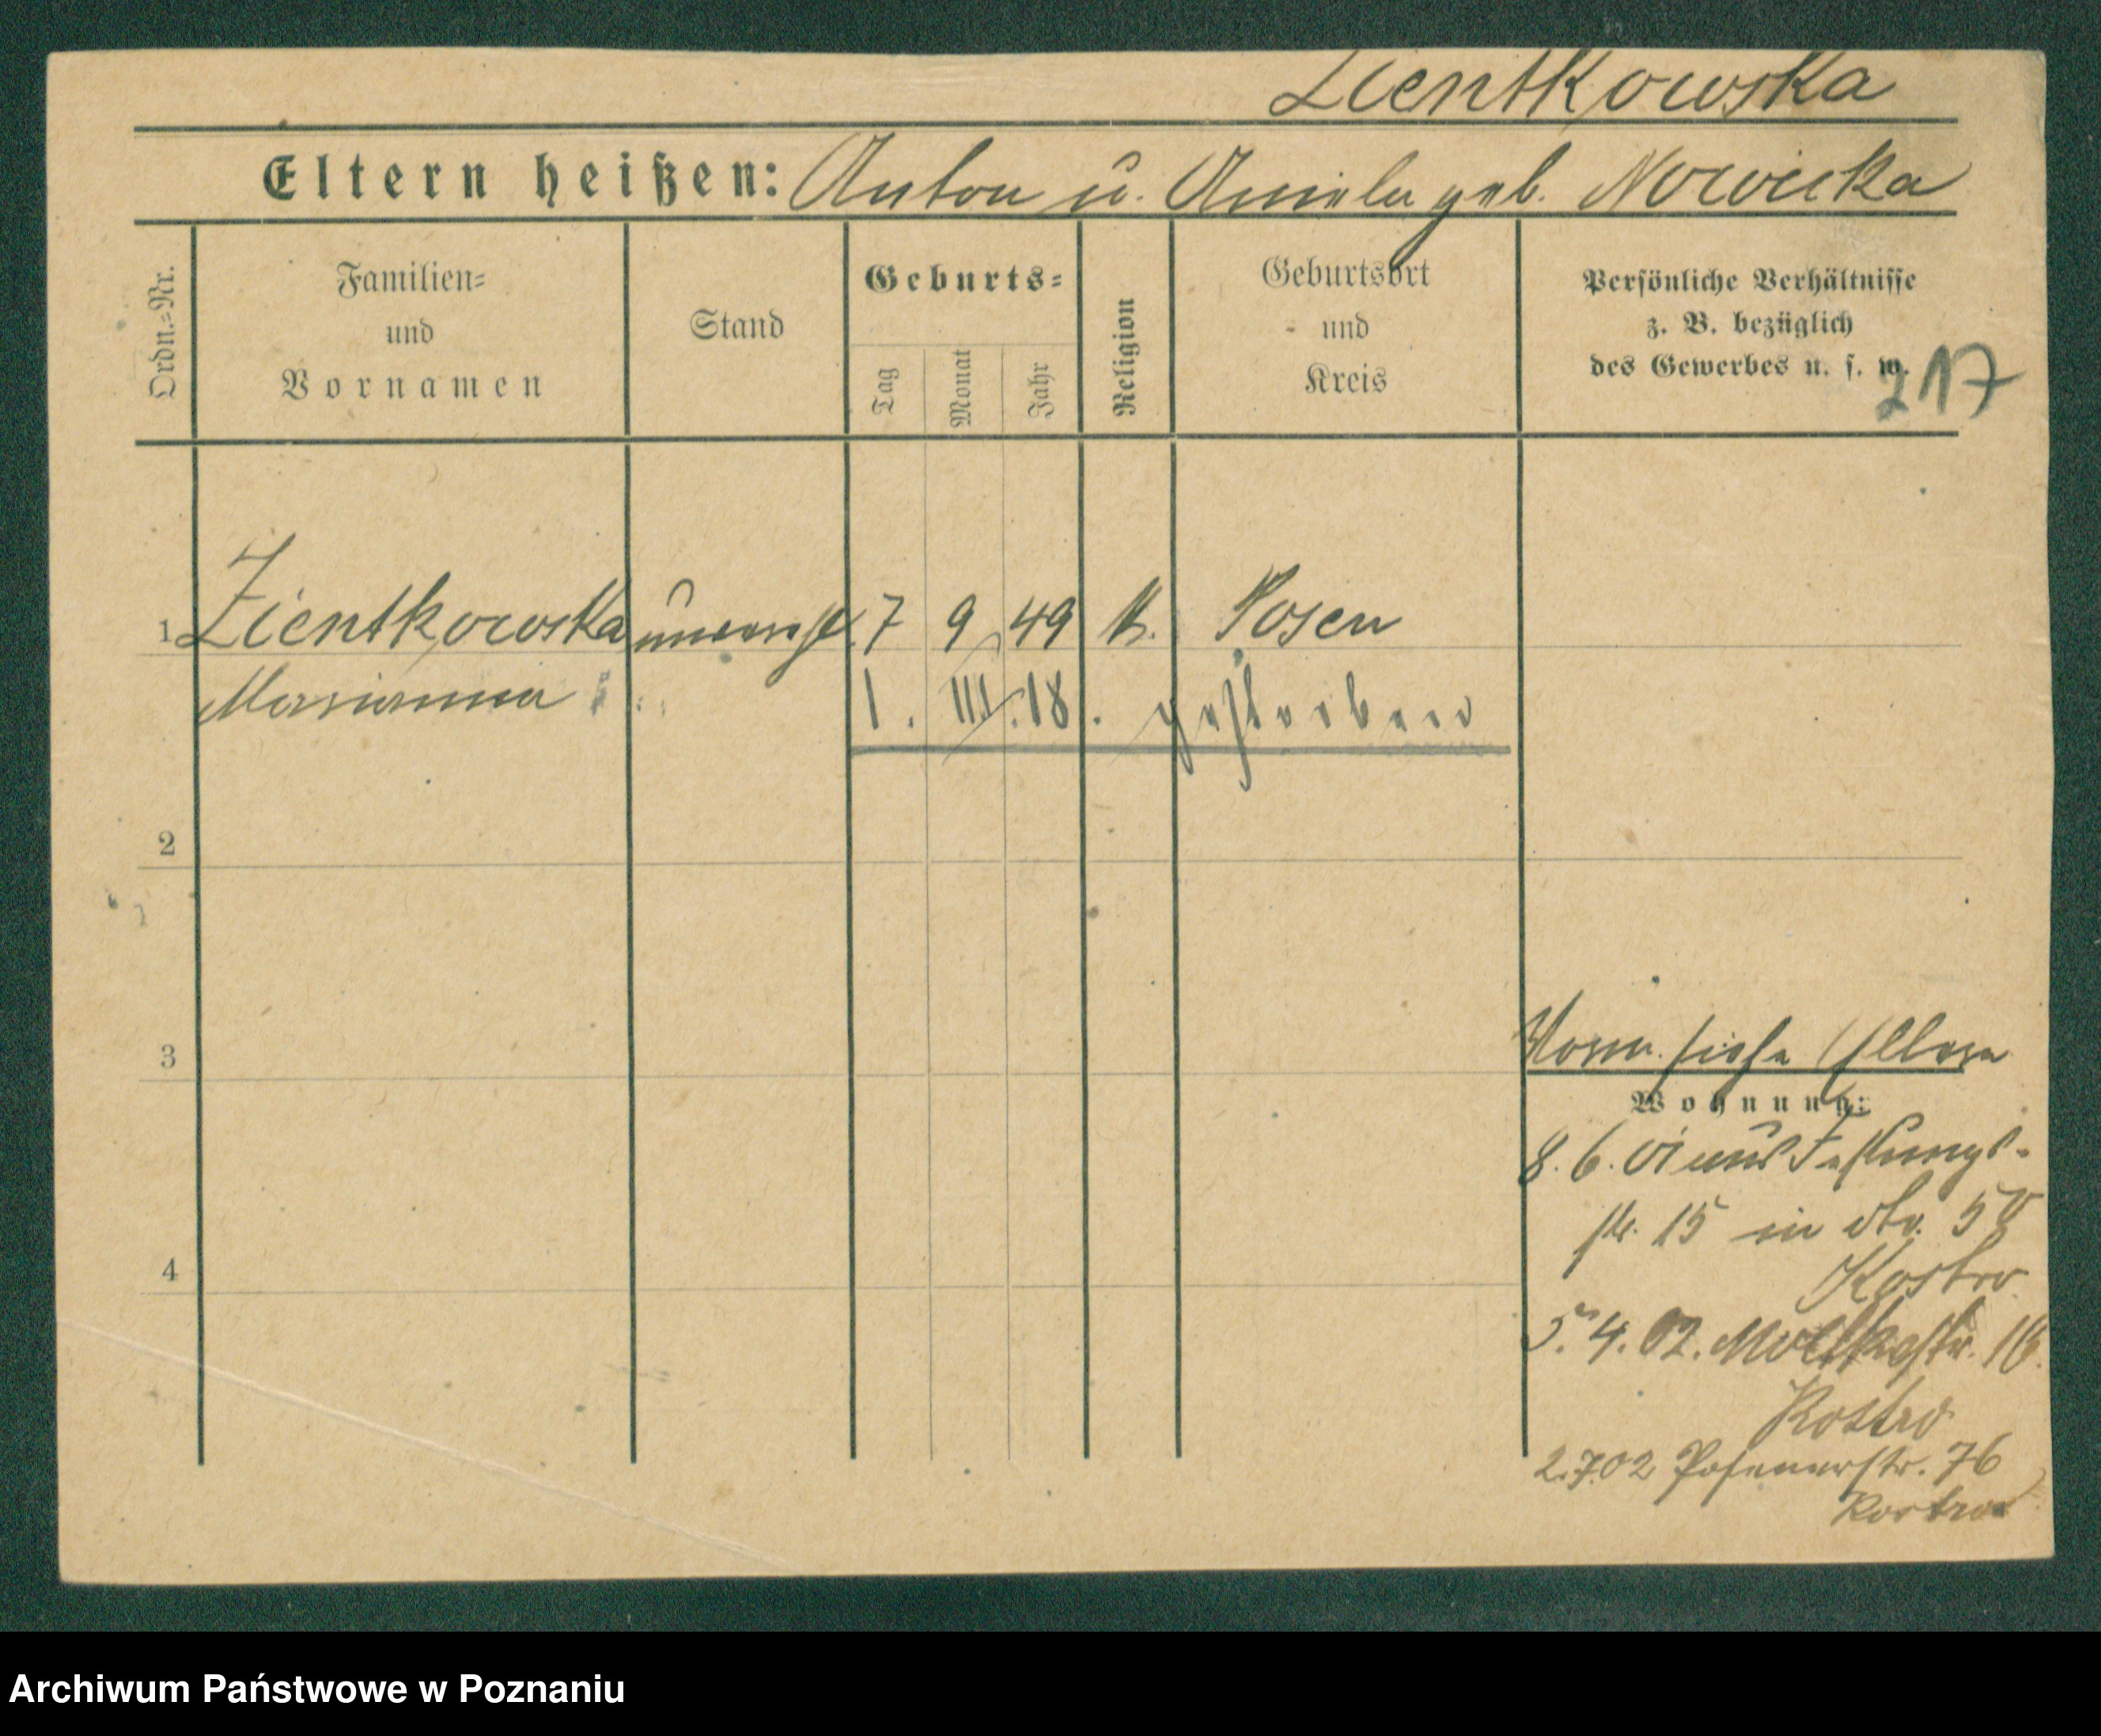 Zientkowska
Eltern heißen: Anton u. Aniela geb. Nowicka
Ordn.=Nr.
Familien=
und
Vornamen
Stand
Geburts=
Tag
Monat
Jahr
Religion
Geburtsort
und
Kreis
Persönliche Verhältnisse
z. B. bezüglich
des Gewerbes u. s. w.
217
1 Zientkowska 7 9 49 k. Posen
Marianna 1. III. 18. gestorben
2
3
4
siehe
Wohnung:
8. 6. 01 aus Festungs-
str. 15 in
Kostro
5. 4. 02. Moltkestr. 16.
Kostro
2.7.02 Posenerstr. 76
Kostro
Archiwum Państwowe w Poznaniu